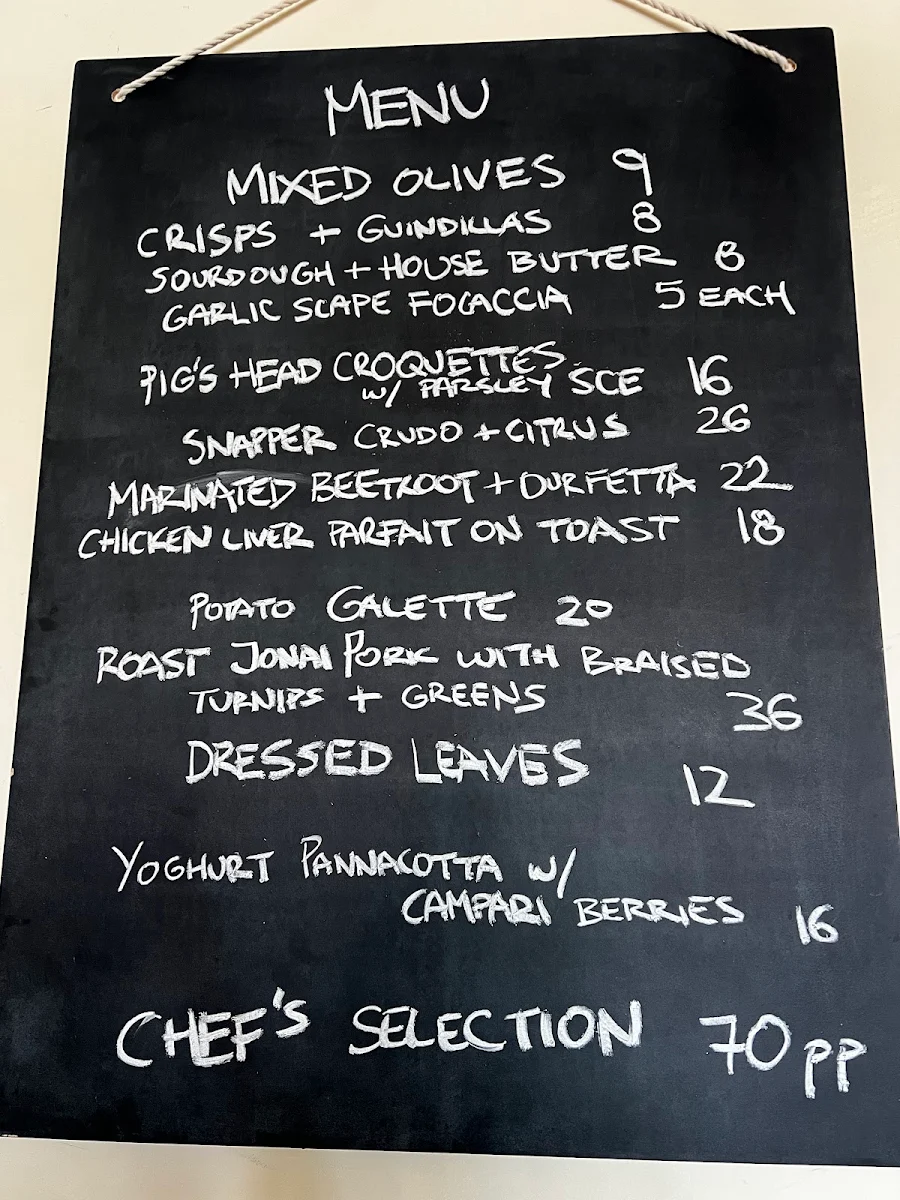 MENU
MIXED OLIVES 9
CRISPS + GUINDILLAS 8
SOURDOUGH + HOUSE BUTTER 8
GARLIC SCAPE FOCACCIA 5 EACH
PIG'S HEAD CROQUETTES
w/ PARSLEY SCE 16
SNAPPER CRUDO + CITRUS 26
MARINATED BEETROOT + OUR FETTA 22
CHICKEN LIVER PARFAIT ON TOAST 18
POTATO GALETTE 20
ROAST JONAI PORK WITH BRAISED
TURNIPS + GREENS 36
DRESSED LEAVES 12
YOGHURT PANNACOTTA w/
CAMPARI BERRIES 16
CHEF'S SELECTION 70 PP